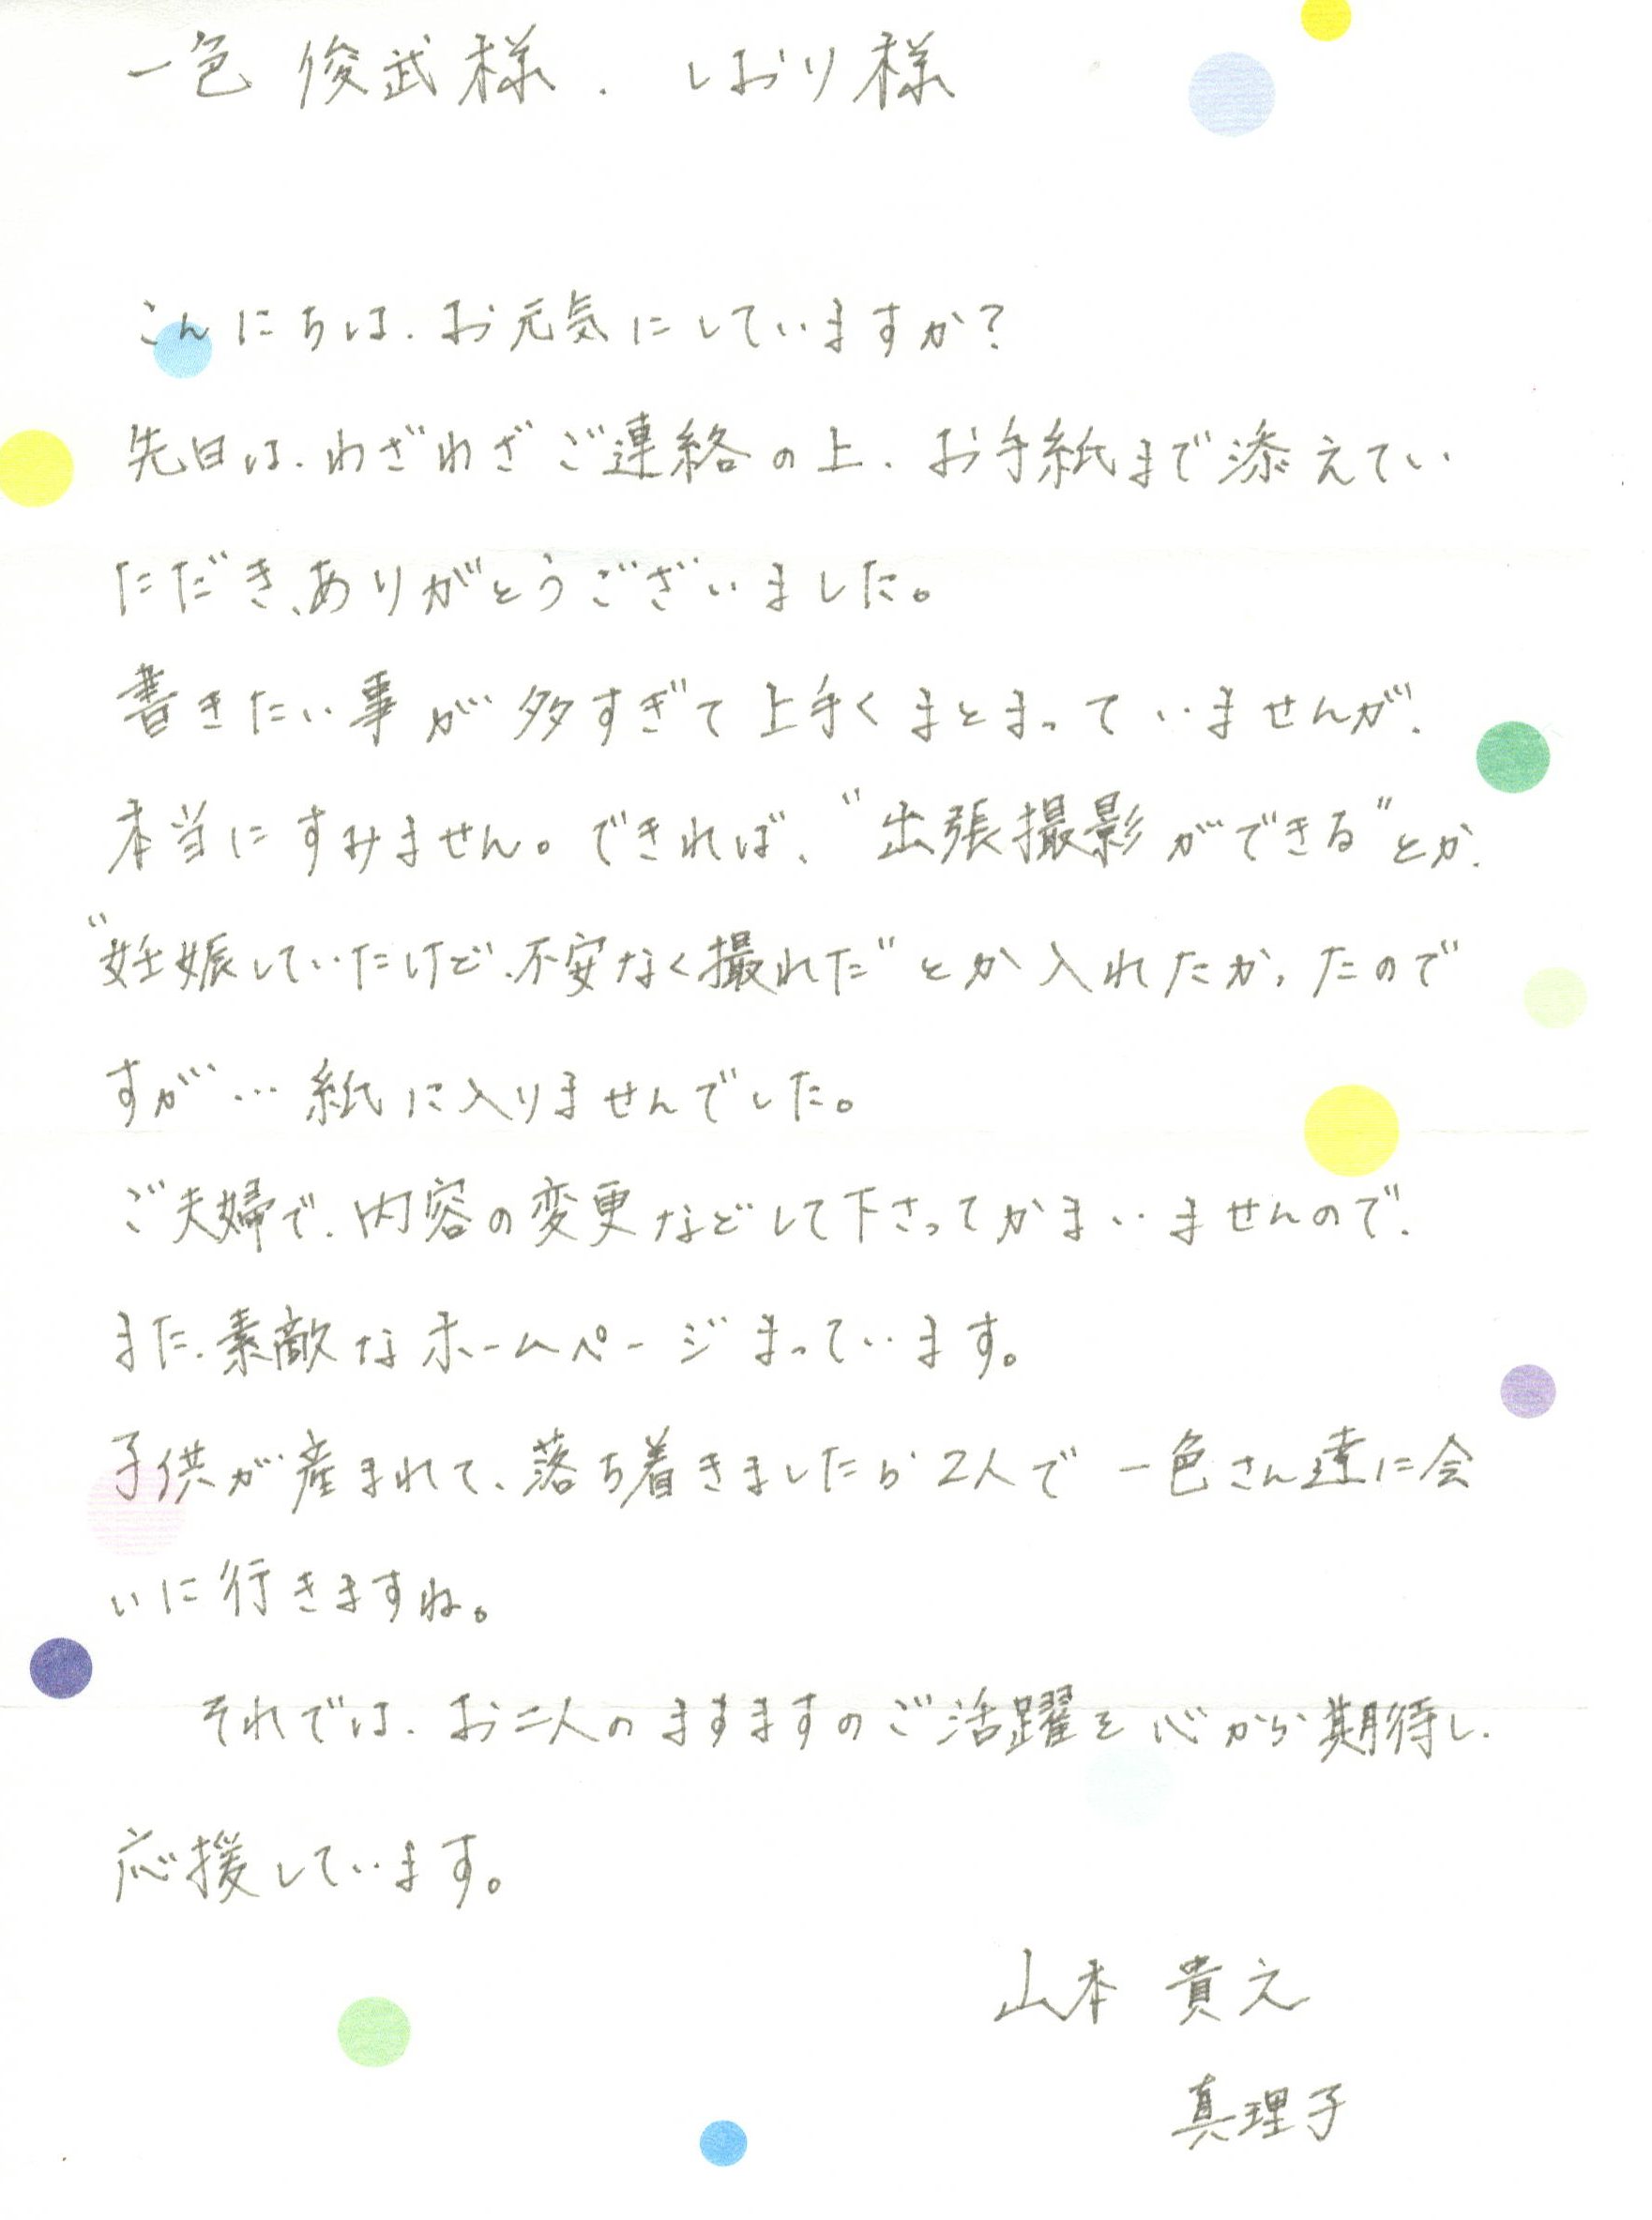 一色 俊武様、しおり様
こんにちは、お元気にしていますか？
先日は、わざわざご連絡の上、お手紙まで添えてい
ただき、ありがとうございました。
書きたい事が多すぎて上手くまとまっていませんが、
本当にすみません。できれば、“出張撮影ができる”とか、
“妊娠していたけど、不安なく撮れた”とか入れたかったので
すが…紙に入りませんでした。
ご夫婦で、内容の変更などして下さってかまいませんので、
また、素敵なホームページまっています。
子供が産まれて、落ち着きましたら2人で一色さん達に会
いに行きますね。
それでは、お二人のますますのご活躍を心から期待し、
応援しています。
山本 貴之
真理子